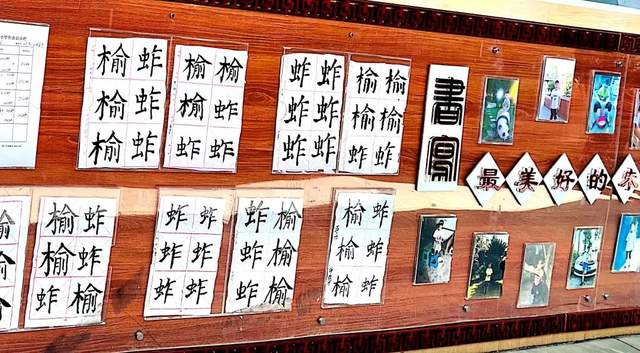 榆蚱
榆蚱
榆蚱
榆榆
榆蚱
榆蚱
蚱蚱
蚱蚱
蚱蚱
榆榆
榆榆
蚱蚱
書寫
最美好的
榆
榆
榆蚱
榆蚱
蚱榆
蚱蚱
蚱蚱
蚱蚱
蚱榆
蚱榆
蚱榆
榆蚱
榆蚱
榆蚱